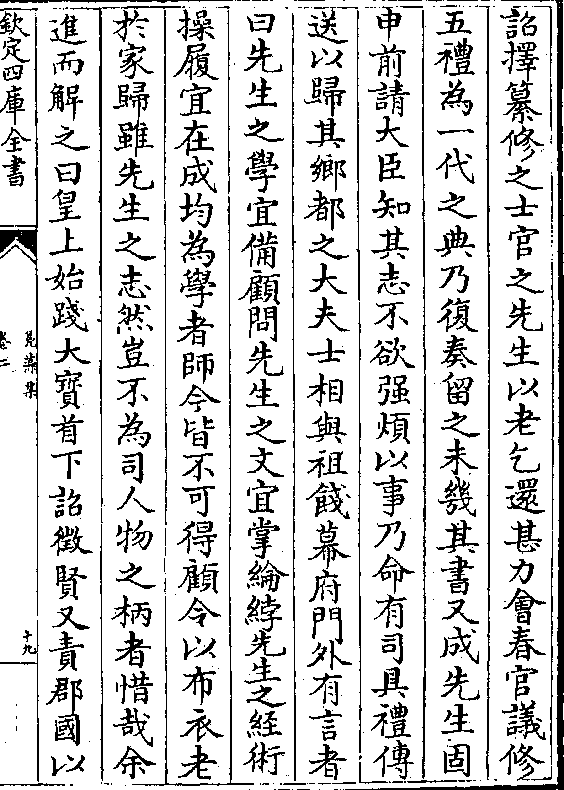 詔擇纂修之士官之先生以老乞還甚力會春官議修
五禮為一代之典乃復奏留之未幾其書又成先生固
申前請大臣知其志不欲强煩以事乃命有司具禮傳
送以歸其鄉都之大夫士相與祖餞幕府門外有言者
曰先生之學宜備顧問先生之文宜掌綸綍先生之經術
操履宜在成均為學者師今皆不可得顧令以布衣老
於家歸雖先生之志然豈不為司人物之柄者惜哉余
進而解之曰皇上始踐大寳首下詔徵賢又責郡國以
欽定四庫全書
卷二
十九